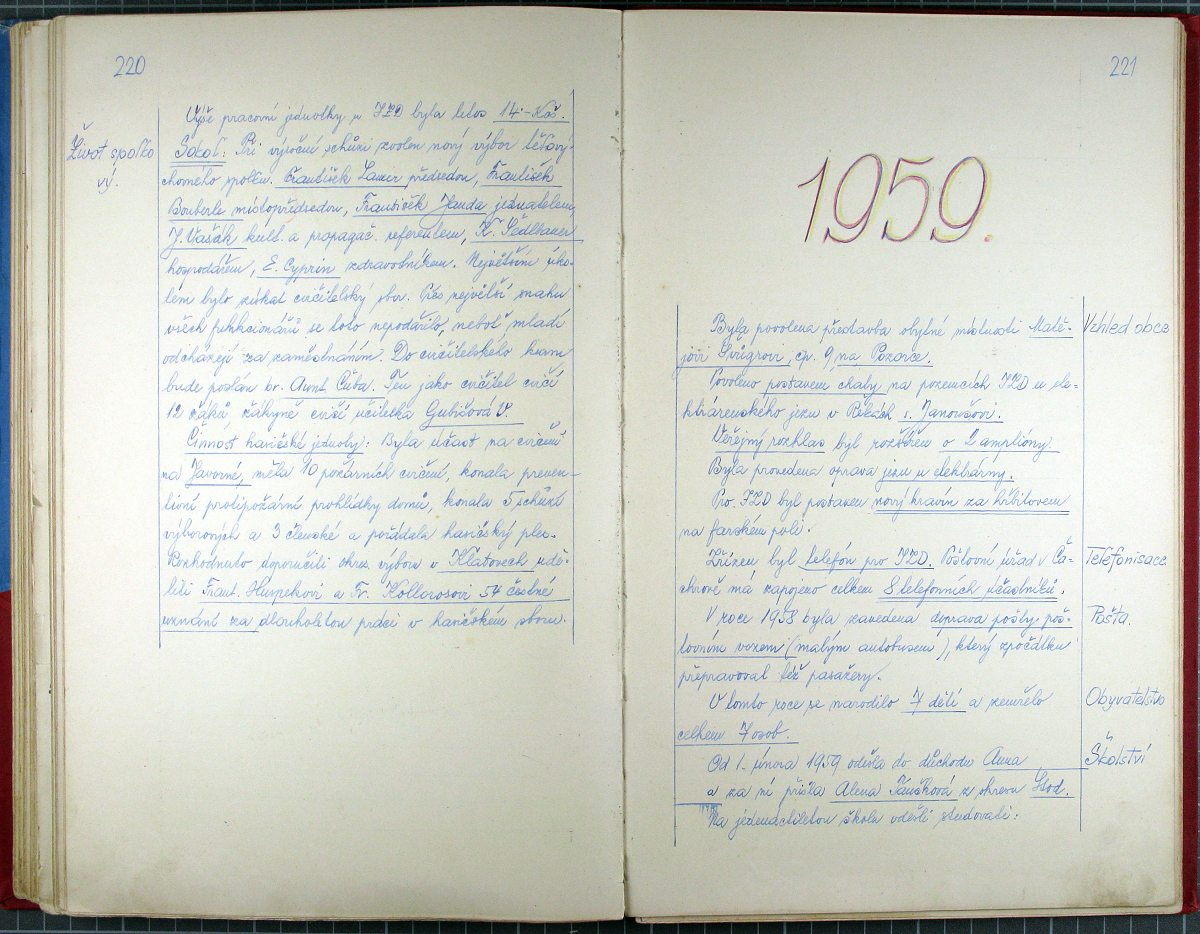 220
Výše pracovní jednotky u JZD byla letos 14.- Kčs.
Život spolko
vý.
Sokol: Při výroční schůzi zvolen nový výbor tělový-
chovného spolku. František Lamer předsedou, František
Bouberle místopředsedou, František Janda jednatelem,
J. Vašák kult. a propagač. referentem, K. Sedlbauer
hospodářem, E. Cyprin zdravotníkem. Největším úko-
lem bylo získat cvičitelský sbor. Přes největší snahu
všech funkcionářů se toto nepodařilo, neboť mladí
odcházejí za zaměstnáním. Do cvičitelského kursu
bude poslán br. Čuba. Ten jako cvičitel cvičí
12 žáků, žákyně cvičí učitelka Gubišová V.
Činnost hasičské jednoty: Byla účast na cvičení
na Javorné, měla 10 požárních cvičení, konala preven-
tivní protipožární prohlídky domů, konala 5 schůzí
výborových a 3 členské a pořádala hasičský ples.
Rozhodnuto doporučiti okres. výboru v Klatovech udě-
liti Frant. Huspekovi a Fr. Kollorosovi 54 čestné
uznání za dlouholetou práci v hasičském sboru.
221
1959.
Vzhled obce
Byla povolena přestavba obytné místnosti Matě-
jovi Švigrovi, čp. 9, na Pozorce.
Povoleno postavení chaty na pozemcích JZD u ele-
ktrárenského jezu v Řekách s. Janoušovi.
Veřejný rozhlas byl rozšířen o 2 amplióny.
Byla provedena oprava jezu u elektrárny.
Pro JZD byl postaven nový kravín za hřbitovem
na farském poli.
Telefonisace
Zřízen byl telefón pro JZD. Poštovní úřad v Ča-
chrově má zapojeno celkem 8 telefonních účastníků.
Pošta.
V roce 1958 byla zavedena doprava pošty poš-
tovním vozem (malým autobusem), který zpočátku
přepravoval též pasažéry.
Obyvatelstvo
V tomto roce se narodilo 7 dětí a zemřelo
celkem 7 osob.
Školství
Od 1. února 1959 odešla do důchodu Anna
a za ní přišla Alena Taušková z okresu Stod.
Na jedenáctiletou školu odešli studovati: